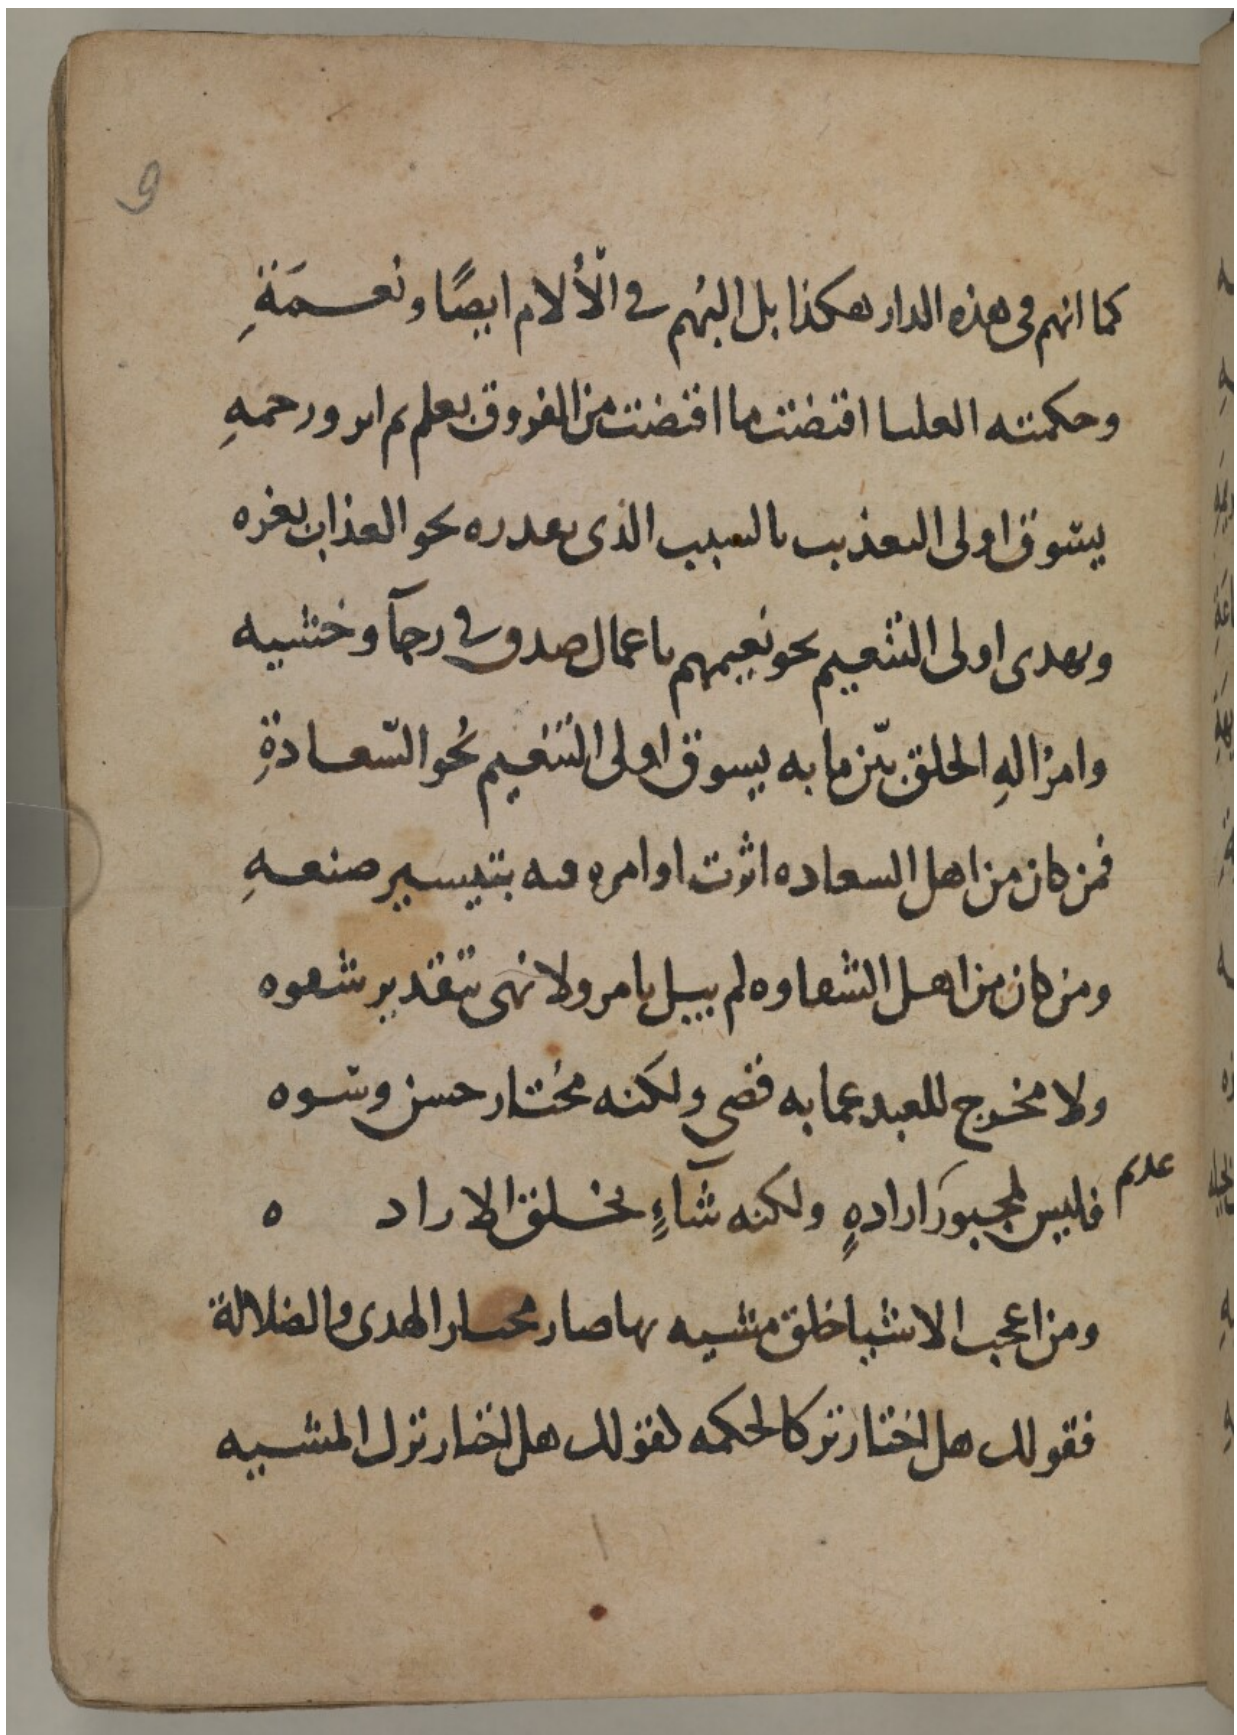 9
كما انهم فى هذه الدار هكذا بل البهم فى الألام ايضًا ونعمَةِ
وحكمته العليا اقتضت ما اقتضت من الفروق بعلم ثم امر ورحمهِ
يسوق اولى التعذيب بالسبب الذى يقدره نحو العذاب بغره
ويهدى اولى التنعيم نحو نعيمهم باعمال صدق فى رجآ وخشيه
وامرُ الهِ الخلق بيّن ما به يسوق اولى التنعيم نُحو السّعادةِ
فمن كان من اهل السعاده اثرت اوامره فيه بتيسير صنعهِ
ومن كان من اهل الشقاوه لم يبل بامر ولا نهى بتقدير شقوه
ولا مخرج للعبد عما به قضى ولكنه مختار حسن وسوه
فليس لمجبور عديم ارادهٍ ولكنه شآءٍ بخلق الاراد ه
ومن اعجب الاشيا خلق مشيه بها صار مختار الهدى والضلالة
فقولك هل اختار تركا لحكمه كقولك هل اختار ترك المشيه